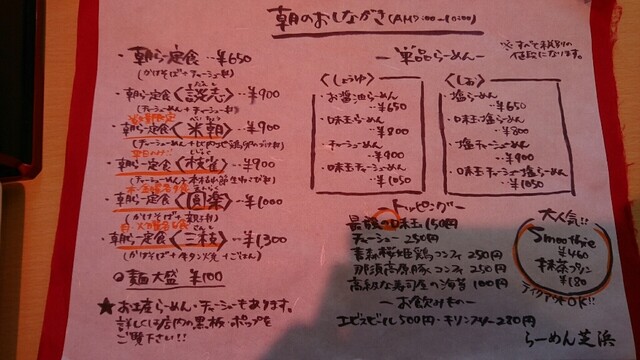 朝のおしながき(AM7:00〜10:00)
※すべて税別の
値段になります。
・朝らー定食‥¥650
(かけそば+チャーシュー丼)
・朝らー定食〈談志〉‥¥900
(チャーシューめん+チャーシュー丼)
・朝らー定食〈米朝〉‥¥900
・朝らー定食〈枝雀〉‥¥900
・朝らー定食〈圓楽〉‥¥1000
(かけそば+親子丼)
・朝らー定食〈三枝〉‥¥1,300
(かけそば+牛タン焼+ごはん)
◎麺大盛 ¥100
★お土産らーめん・チャーシューもあります。
詳しくは店内の黒板・ポップを
ご覧下さい!!
ー単品らーめんー
〈しょうゆ〉
・お醤油らーめん
‥¥650
・味玉らーめん
‥¥800
・チャーシューめん
‥¥900
・味玉チャーシューめん
‥¥1050
〈しお〉
・塩らーめん
‥¥650
・味玉塩らーめん
‥¥800
・塩チャーシューめん
‥¥900
・味玉塩チャーシューめん
‥¥1050
ートッピングー
最強の味玉 150円
チャーシュー 250円
青森桜姫鶏コンフィ 250円
那須高原豚コンフィ 250円
高級な寿司屋の海苔 100円
ーお飲みものー
エビスビール500円・キリンフリー280円
大人気!!
Smoothie
¥460
抹茶プリン
¥180
テイクアウトOK!!
らーめん芝浜